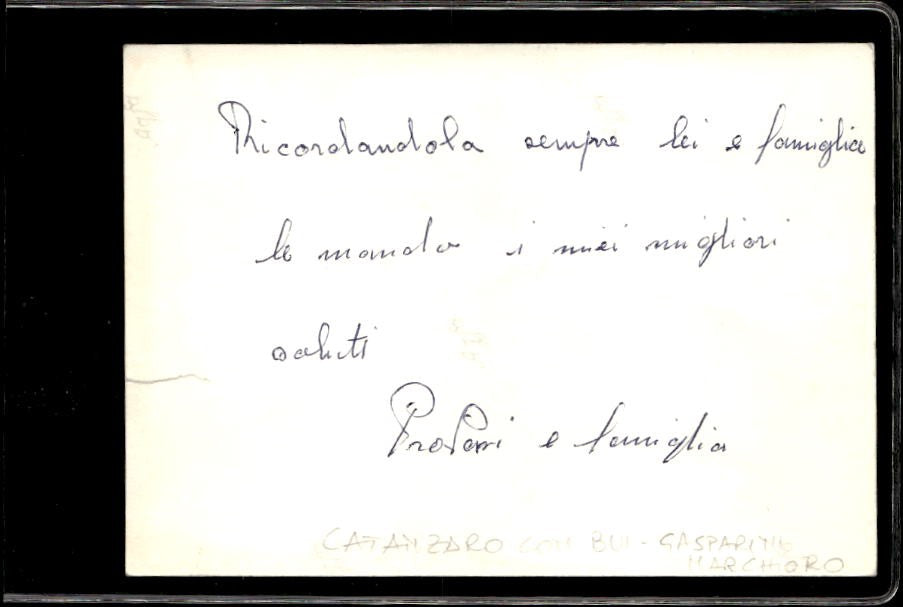 Ricordandola sempre lei e famiglia
le mando i miei migliori
saluti
e famiglia
CATANZARO CON BUI - GASPARINI
MARCHIORO